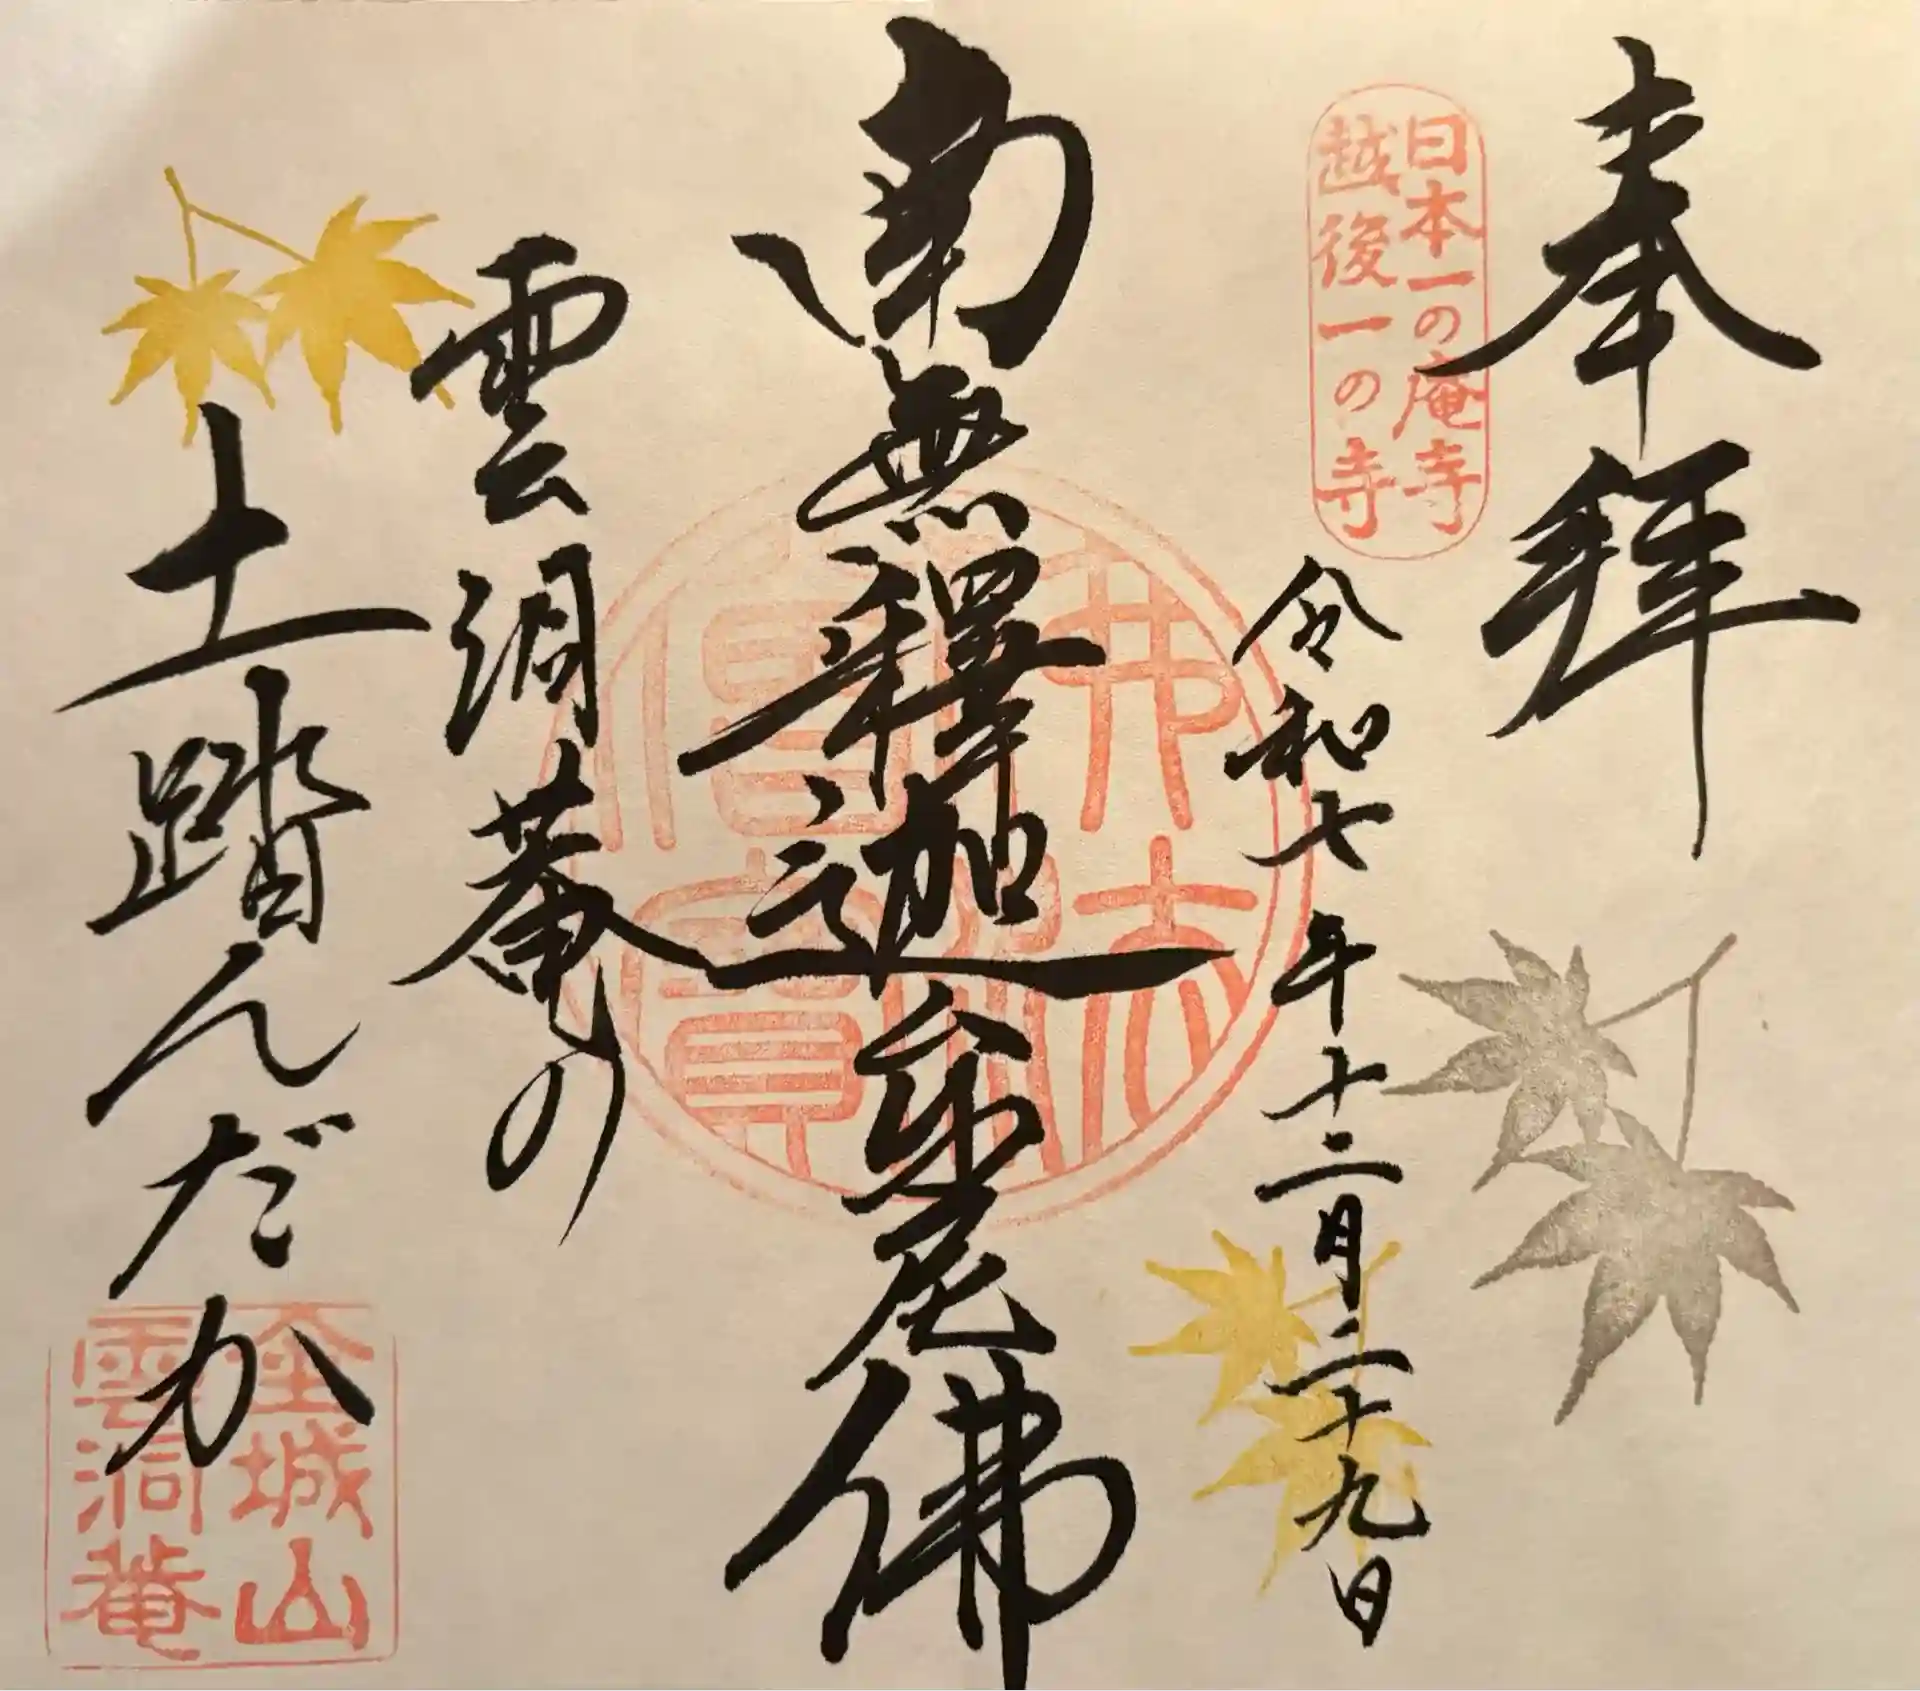 奉拜
日本一の庵寺
越後一の寺
令和七年十二月二十九日
南無釋迦牟尼佛
佛法
僧寶
雲洞菴の
土踏んだか
金城山
雲洞菴